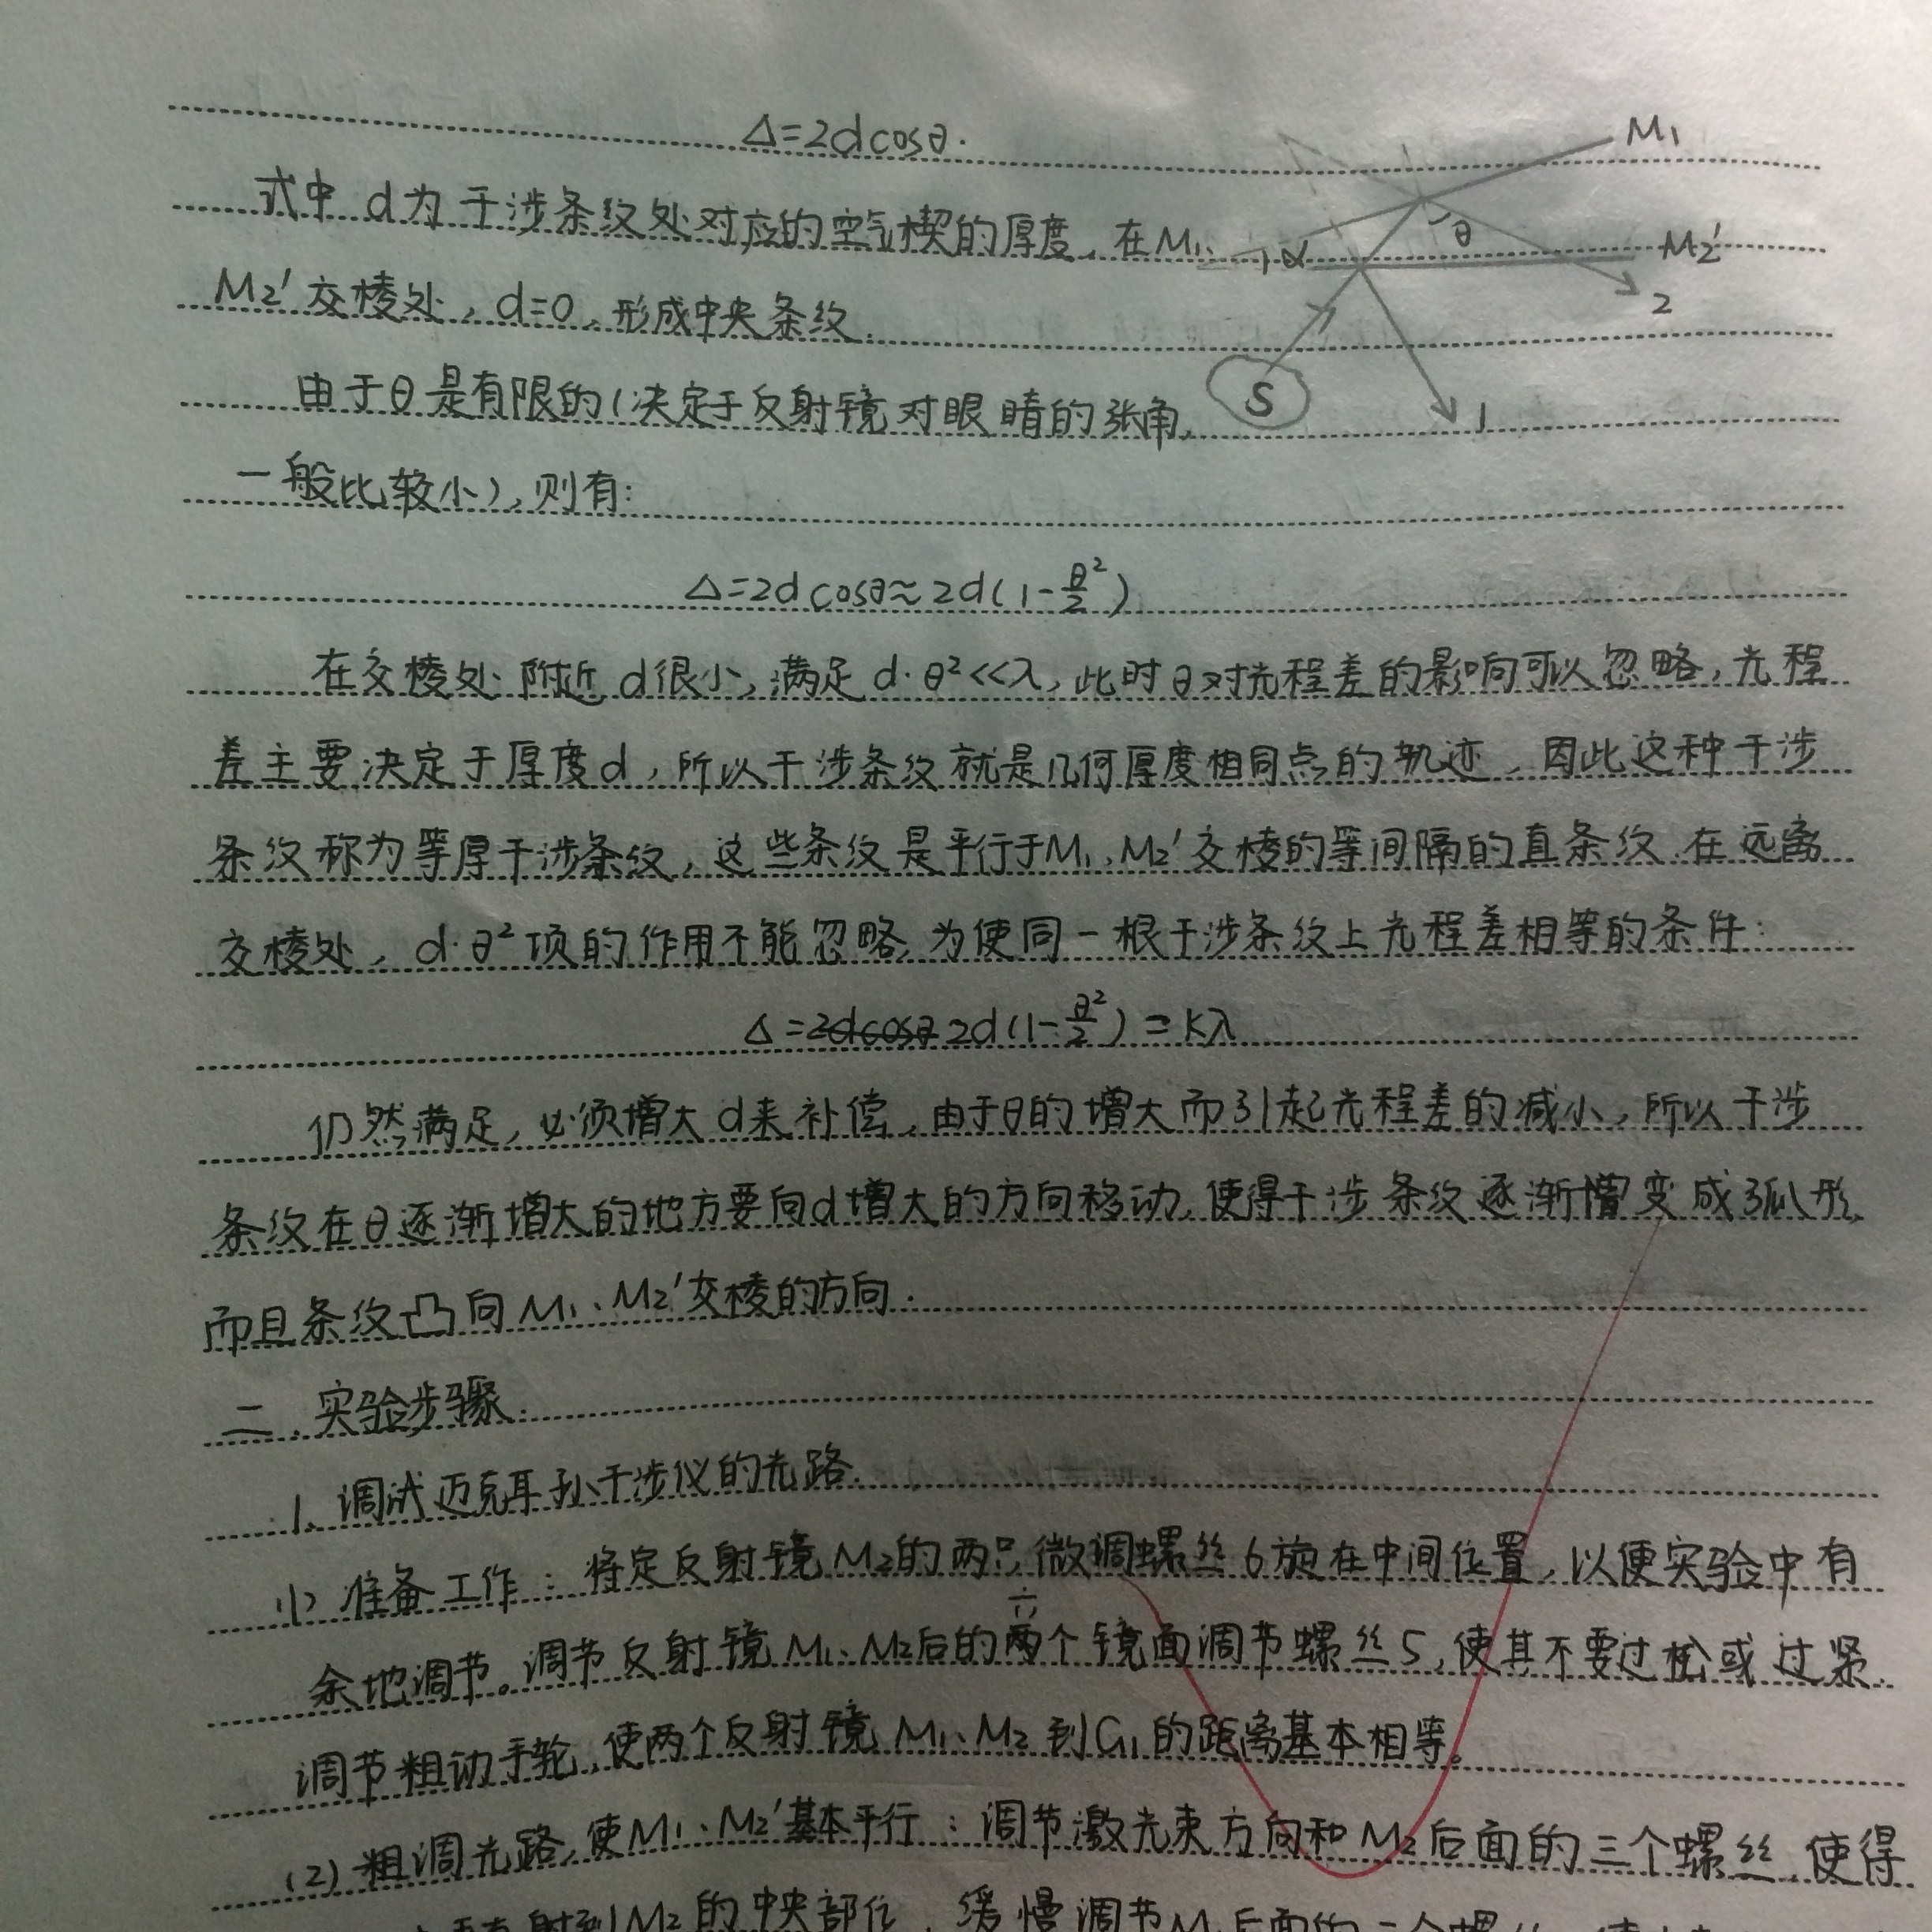 Δ=2dcosθ.
M₁
式中 d为干涉条纹处对应的空气楔的厚度,在M₁、
α
θ
M₂'
M₂'交棱处,d=0,形成中央条纹.
2
由于θ是有限的(决定于反射镜对眼睛的张角,
S
1
一般比较小),则有:
Δ=2dcosθ≈2d(1-θ²/2)
在交棱处附近d很小,满足d·θ²<<λ,此时θ对光程差的影响可以忽略,光程
差主要决定于厚度d,所以干涉条纹就是几何厚度相同点的轨迹,因此这种干涉
条纹称为等厚干涉条纹,这些条纹是平行于M₁、M₂'交棱的等间隔的直条纹.在远离
交棱处,d·θ²项的作用不能忽略,为使同一根干涉条纹上光程差相等的条件:
Δ=2dcosθ 2d(1-θ²/2)=kλ
仍然满足,必须增大d来补偿,由于θ的增大而引起光程差的减小,所以干涉
条纹在θ逐渐增大的地方要向d增大的方向移动,使得干涉条纹逐渐变成弧形,
而且条纹凸向M₁、M₂'交棱的方向.
二、实验步骤.
1、调试迈克耳孙干涉仪的光路.
(1)准备工作:将定反射镜M₂的两只微调螺丝6旋在中间位置,以便实验中有
六
余地调节。调节反射镜M₁、M₂后的两个镜面调节螺丝5,使其不要过松或过紧.
调节粗动手轮,使两个反射镜M₁、M₂到G₁的距离基本相等。
(2)粗调光路,使M₁、M₂'基本平行:调节激光束方向和M₂后面的三个螺丝,使得
射到M₂的中央部位,缓慢调节M